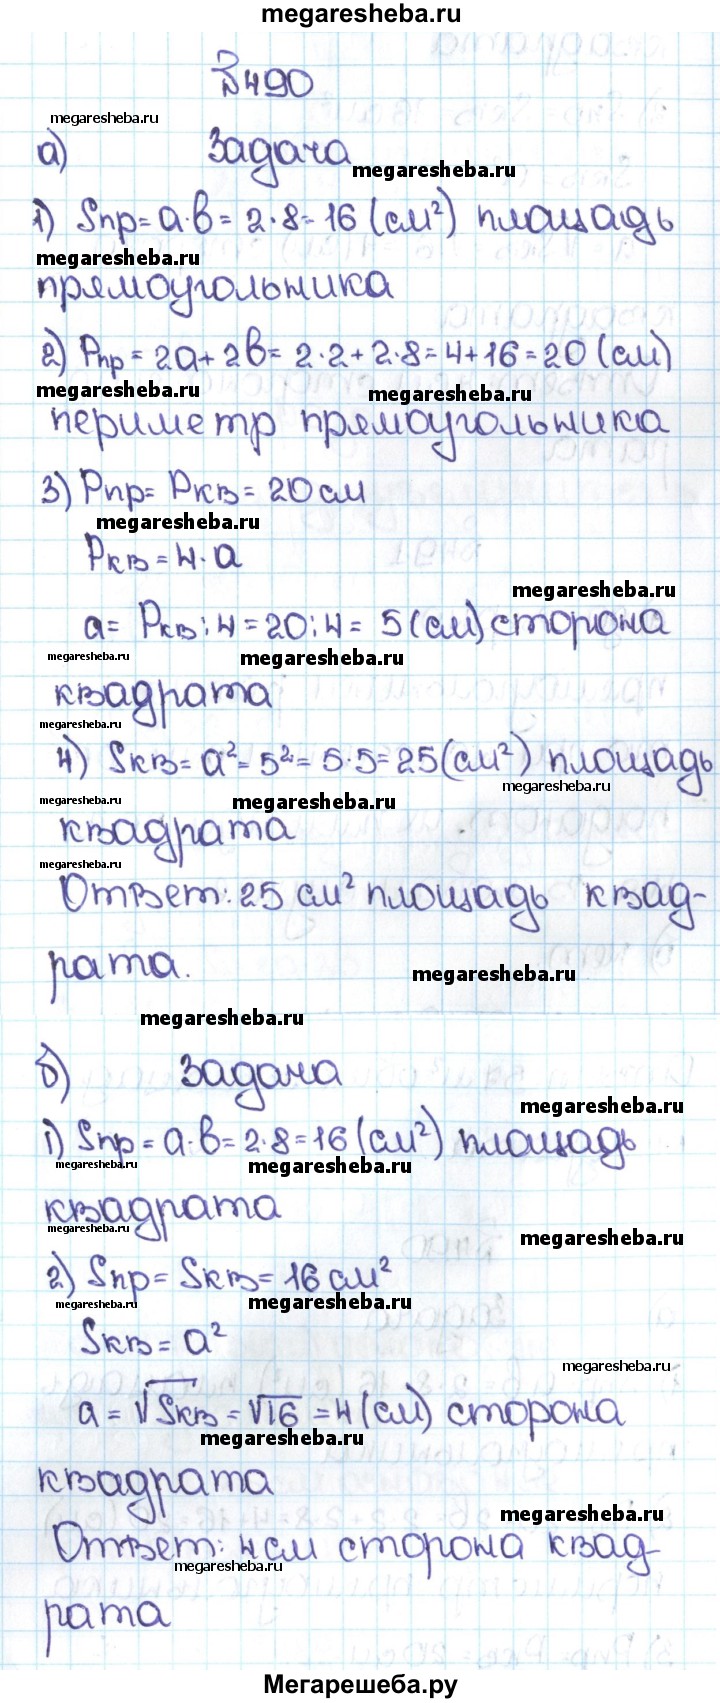 megaresheba.ru
№490
megaresheba.ru
а) Задача
megaresheba.ru
1) Sпр = a·b = 2·8 = 16 (см²) площадь
megaresheba.ru
прямоугольника
2) Pпр = 2a + 2b = 2·2 + 2·8 = 4 + 16 = 20 (см)
megaresheba.ru megaresheba.ru
периметр прямоугольника
3) Pпр = Pкв = 20 см
megaresheba.ru
Pкв = 4·a
megaresheba.ru
a = Pкв : 4 = 20 : 4 = 5 (см) сторона
megaresheba.ru megaresheba.ru
квадрата
megaresheba.ru
4) Sкв = a² = 5² = 5·5 = 25 (см²) площадь
megaresheba.ru
megaresheba.ru megaresheba.ru
квадрата
megaresheba.ru
Ответ: 25 см² площадь квад-
рата.
megaresheba.ru
megaresheba.ru
б) Задача
megaresheba.ru
1) Sпр = a·b = 2·8 = 16 (см²) площадь
megaresheba.ru megaresheba.ru
квадрата
megaresheba.ru megaresheba.ru
2) Sпр = Sкв = 16 см²
megaresheba.ru megaresheba.ru
Sкв = a²
megaresheba.ru
a = √Sкв = √16 = 4 (см) сторона
megaresheba.ru
квадрата
megaresheba.ru
Ответ: 4 см сторона квад-
megaresheba.ru
рата
Мегарешеба.ру